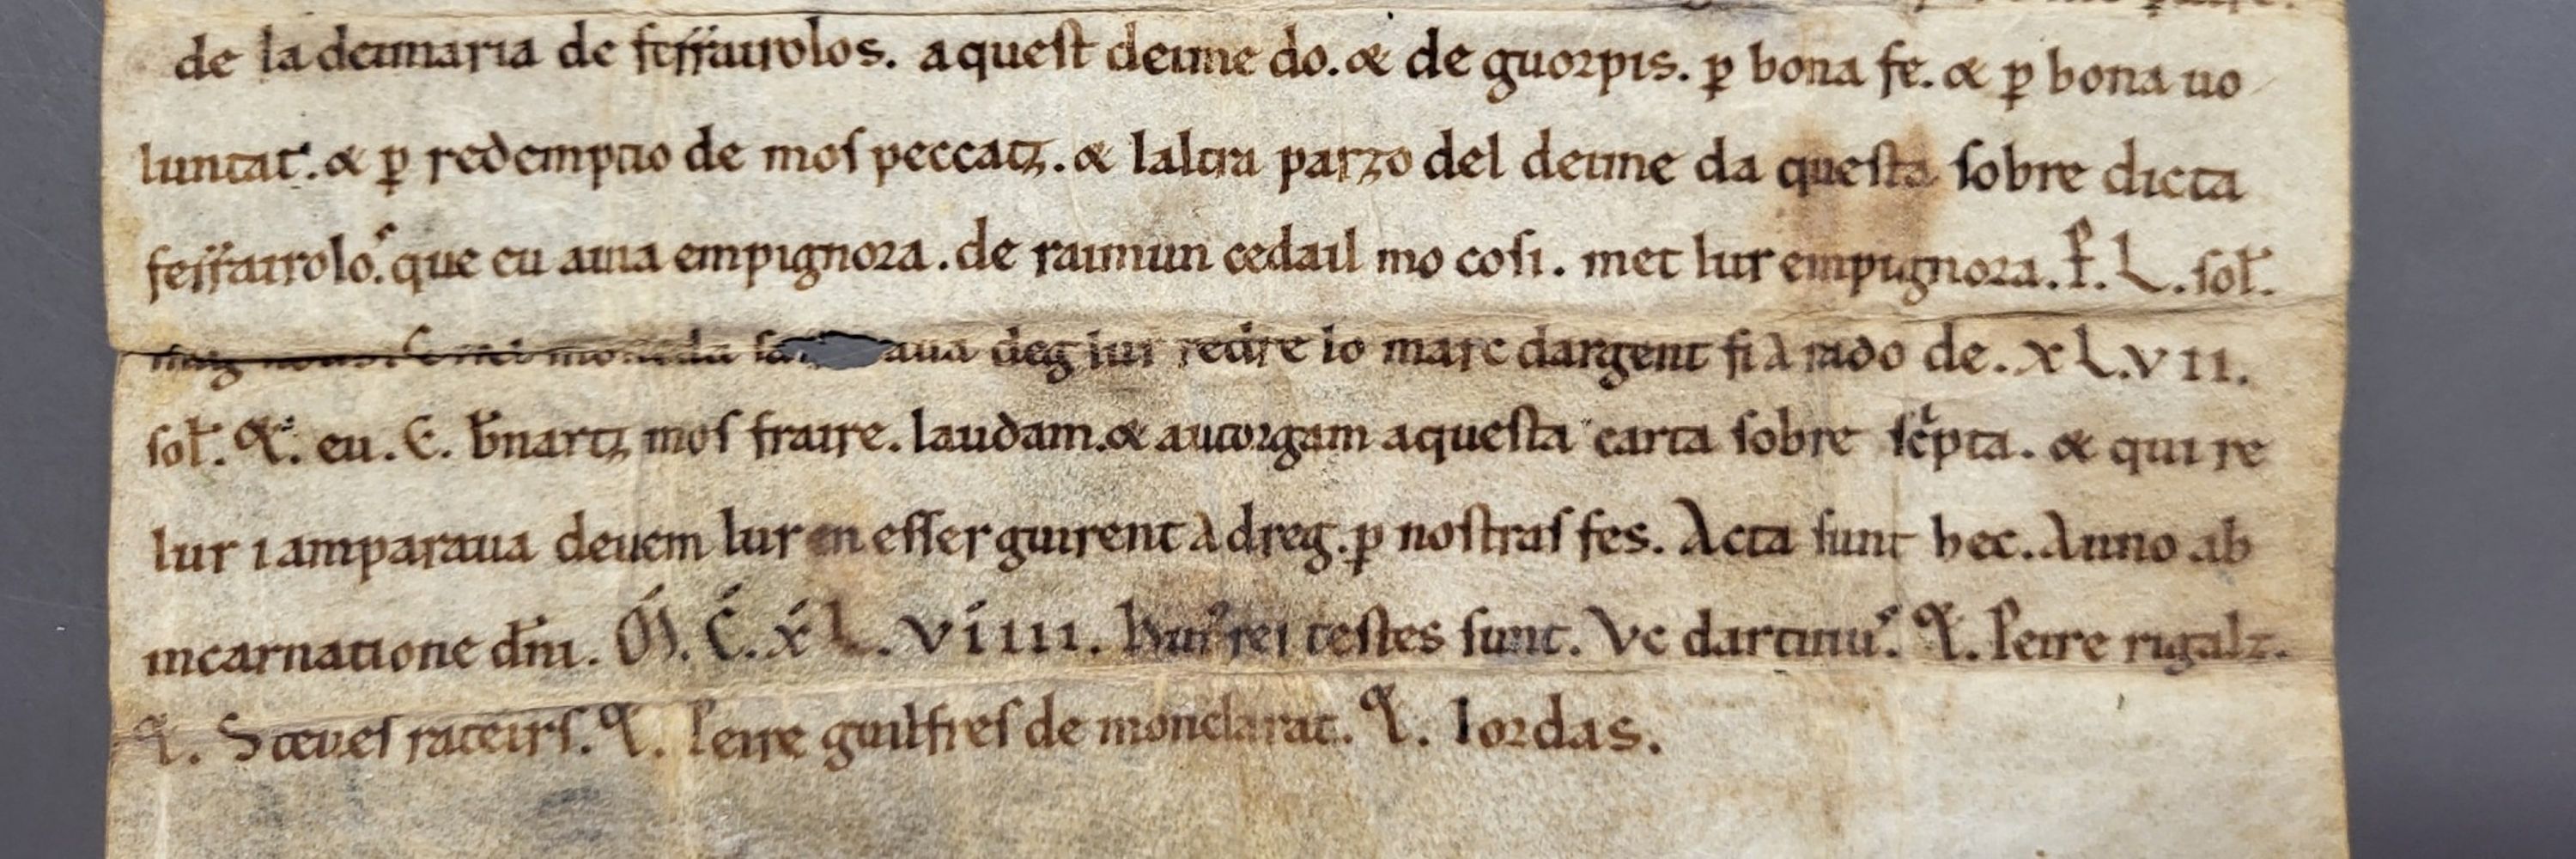 de la deimaria de ferrairolos. aquest deime do. & de guorpis. p bona fe. & p bona uo
luntat. & p redemptio de mos peccatz. & laltra parzo del deime da questa sobre dicta
ferrairolos. que eu auia empignora. de raimun cedail mo cosi. met lur empignora. P. L. sol.
deg lur redre lo marc dargent fi a rado de. xL.vii.
sol. &. eu. E. bnartz mos fraire. laudam. & autorgam aquesta carta sobre scpta. & qui re
lur i amparaua deuem lur en esser guirent a dreg. p nostras fes. Acta sunt hec. Anno ab
incarnatione dni. M. C. xL. viiii. hui rei testes sunt. Vc dartinus. &. Peire rigalz.
&. Steues rateirs. &. Peire guilfres de monclarat. &. Iordas.